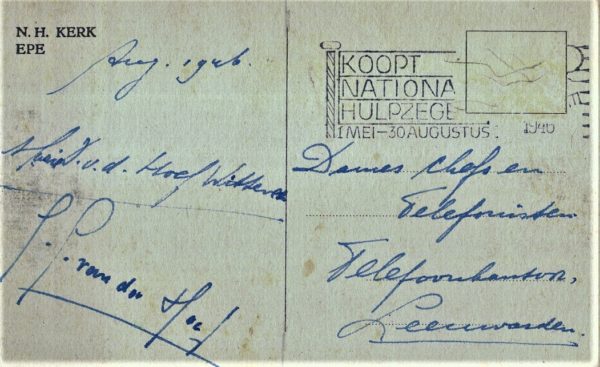 N. H. KERK
EPE
Aug. 1946.
v.d. Hoef
J. van der Hoef
KOOPT
NATIONA
HULPZEGE
1 MEI-30 AUGUSTUS
1946
Dames Chefs en
Telefonisten
Telefoonkantoor,
Leeuwarden.